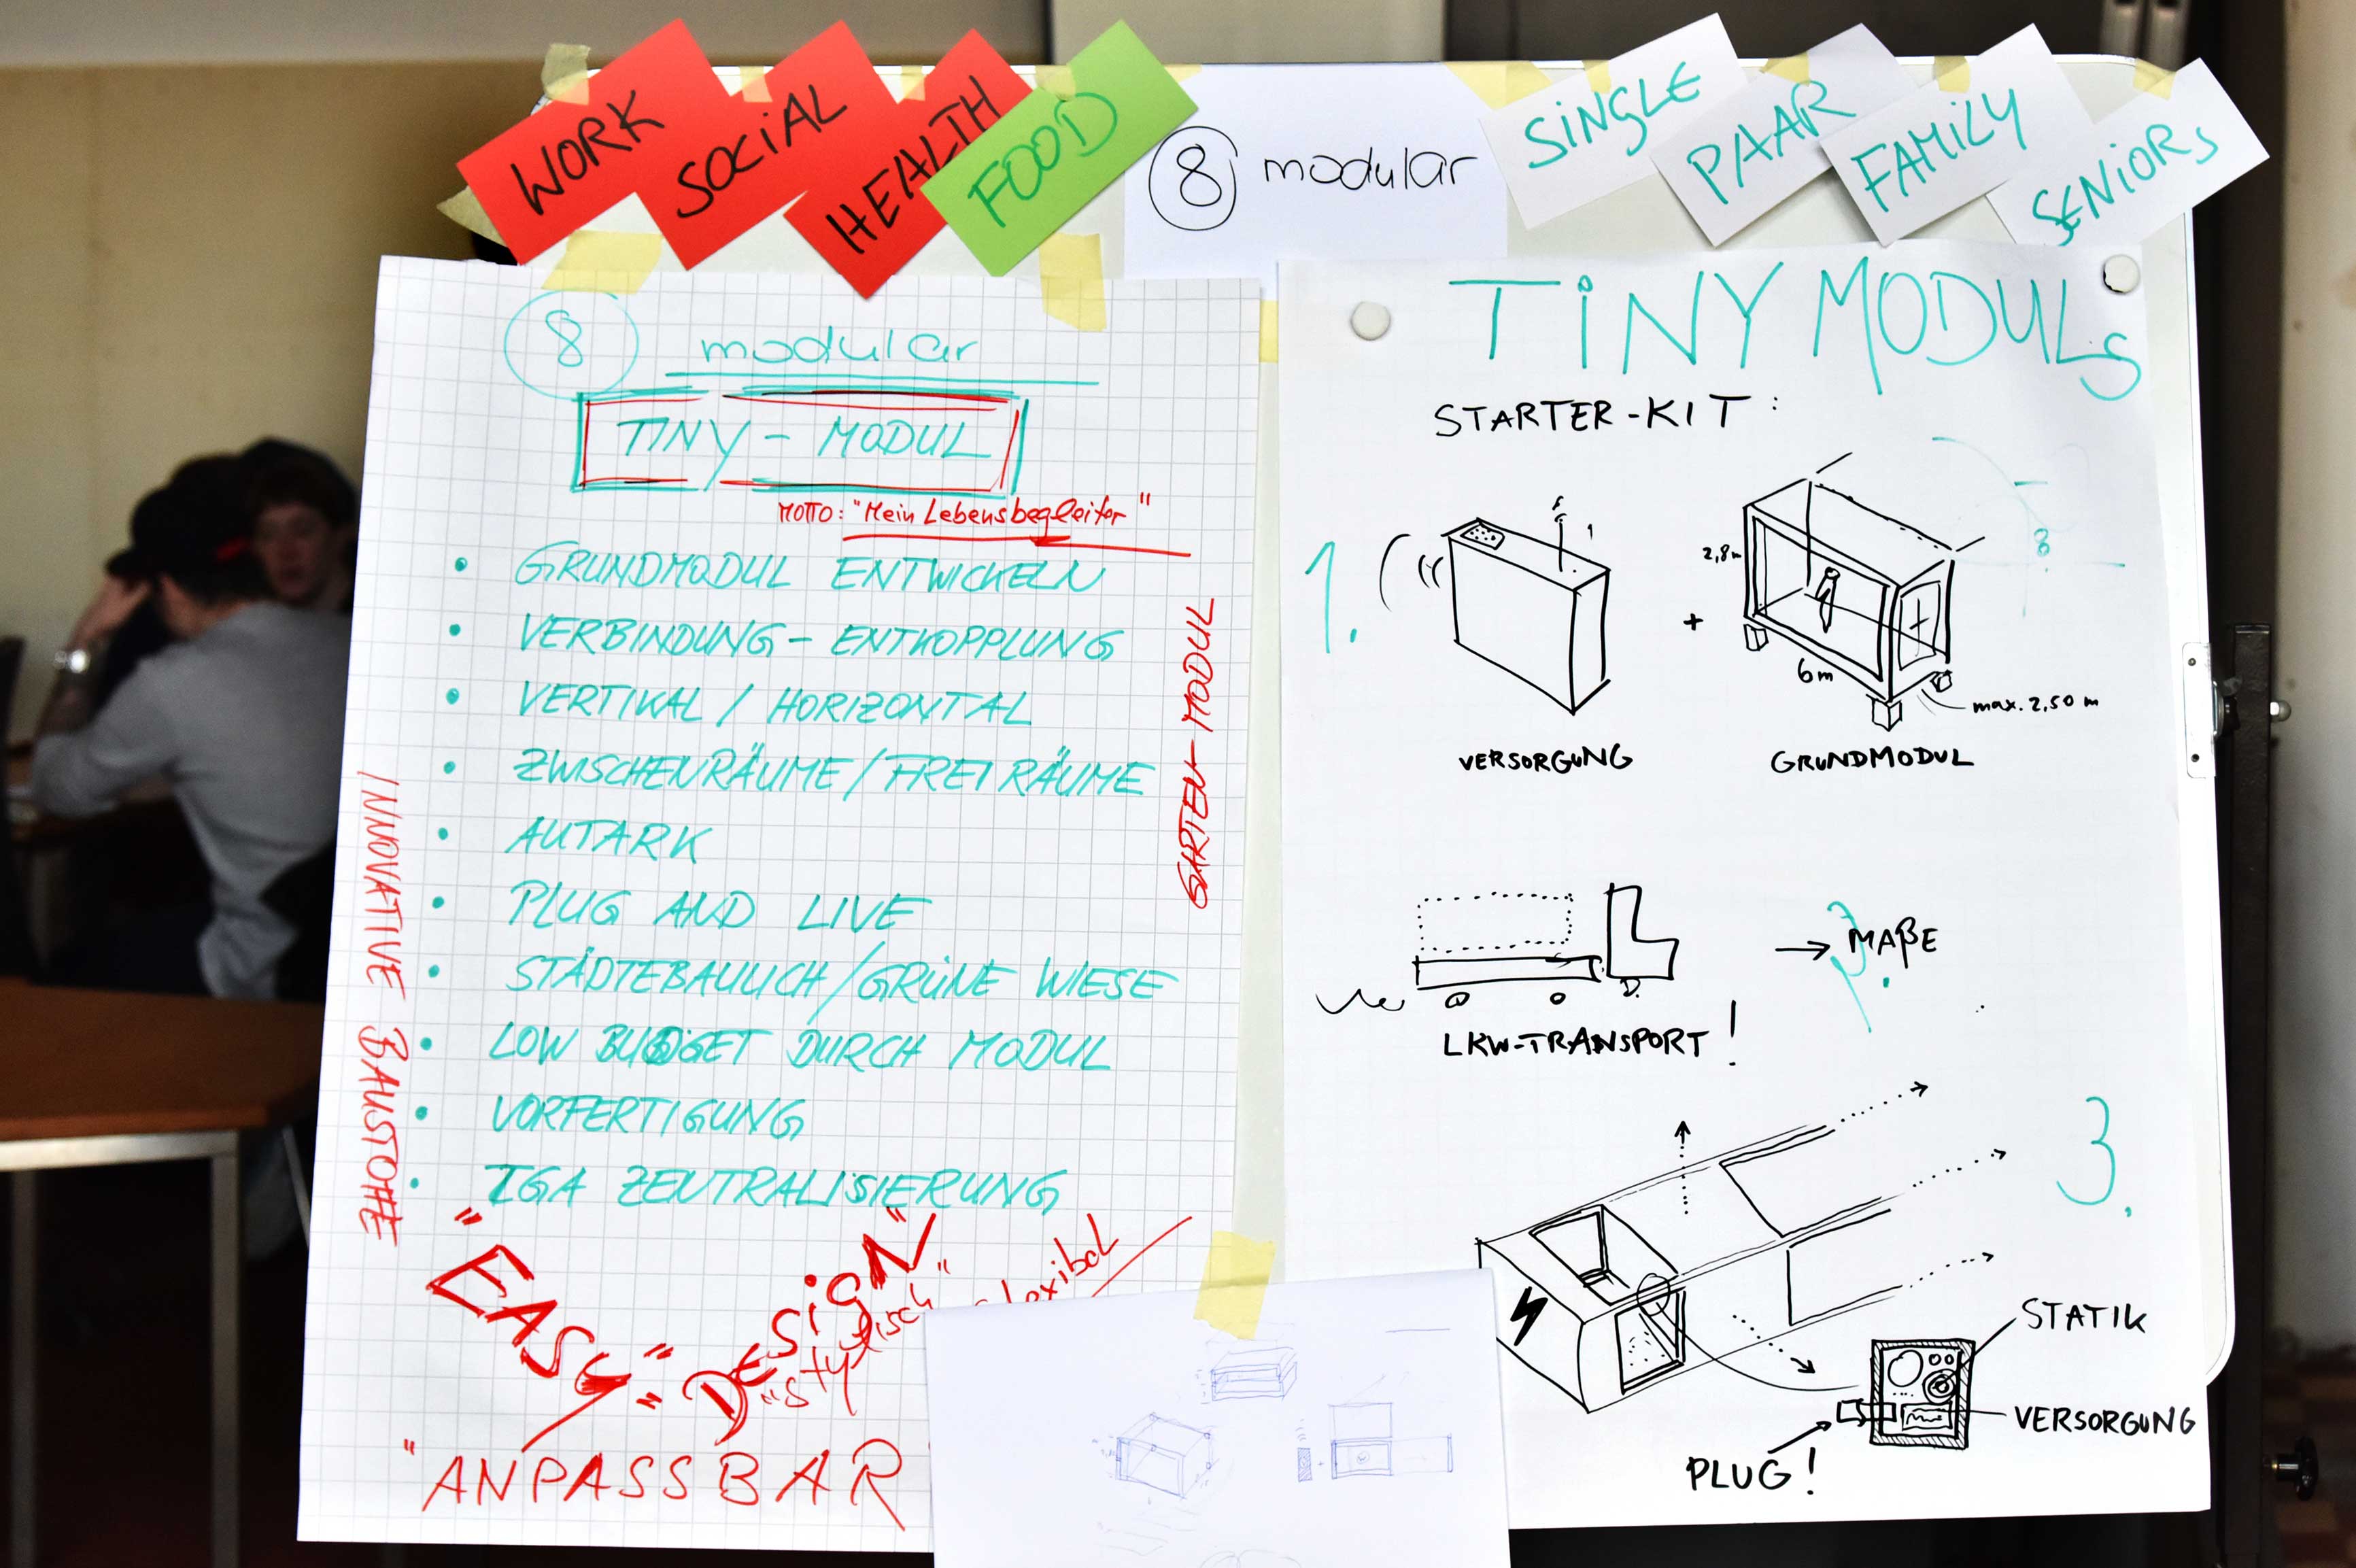 WORK
SOCIAL
HEALTH
FOOD
8 modular
SINGLE
PAAR
FAMILY
SENIORS
8 modular
TINY - MODUL
MOTTO: "Mein Lebensbegleiter"
• GRUNDMODUL ENTWICKELN
• VERBINDUNG - ENTKOPPLUNG
• VERTIKAL / HORIZONTAL
• ZWISCHENRÄUME / FREIRÄUME
• AUTARK
• PLUG AND LIVE
• STÄDTEBAULICH / GRÜNE WIESE
• LOW BUDGET DURCH MODUL
• VORFERTIGUNG
• TGA ZENTRALISIERUNG
INNOVATIVE BAUSTOFFE
GARTEN-MODUL
"EASY"
= DESIGN"
"ANPASSBAR
TINY MODULs
STARTER-KIT:
1.
+
2,8m
6m
max. 2,50 m
VERSORGUNG
GRUNDMODUL
→ MAßE
LKW-TRANSPORT!
3.
STATIK
VERSORGUNG
PLUG!